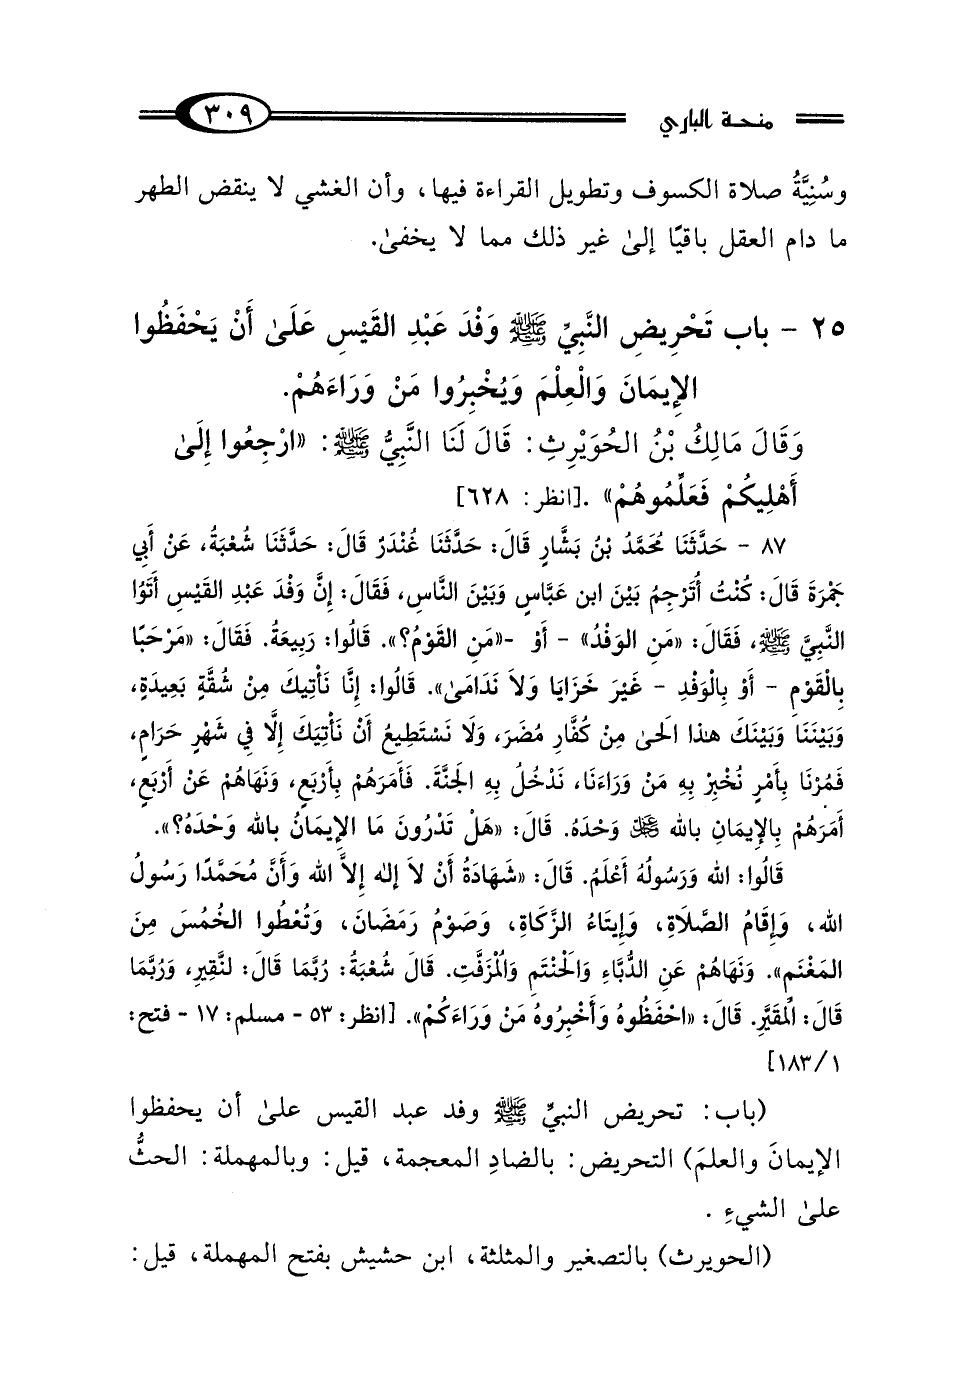 منحة الباري
٣٠٩
وسُنِيَّةُ صلاة الكسوف وتطويل القراءة فيها، وأن الغشي لا ينقض الطهر
ما دام العقل باقيًا إلىٰ غير ذلك مما لا يخفىٰ.
٢٥ - باب تَحْرِيضِ النَّبِيِّ ﷺ وَفْدَ عَبْدِ القَيْسِ عَلَىٰ أَنْ يَحْفَظُوا
الإِيمَانَ وَالْعِلْمَ وَيُخْبِرُوا مَنْ وَرَاءَهُمْ.
وَقَالَ مَالِكُ بْنُ الحُوَيْرِثِ: قَالَ لَنَا النَّبِيُّ ﷺ: «ارْجِعُوا إِلَىٰ
أَهْلِيكُمْ فَعَلِّمُوهُمْ» .[انظر: ٦٢٨]
٨٧ - حَدَّثَنَا مُحَمَّدُ بْنُ بَشَّارٍ قَالَ: حَدَّثَنَا غُنْدَرٌ قَالَ: حَدَّثَنَا شُعْبَةُ، عَنْ أَبِي
جَمْرَةَ قَالَ: كُنْتُ أُتَرْجِمُ بَيْنَ ابن عَبَّاسٍ وَبَيْنَ النَّاسِ، فَقَالَ: إِنَّ وَفْدَ عَبْدِ القَيْسِ أَتَوُا
النَّبِيَّ ﷺ، فَقَالَ: «مَنِ الوَفْدُ» - أَوْ -«مَنِ القَوْمُ؟». قَالُوا: رَبِيعَةُ. فَقَالَ: «مَرْحَبًا
بِالْقَوْمِ - أَوْ بِالْوَفْدِ - غَيْرَ خَزَايَا وَلاَ نَدَامَىٰ». قَالُوا: إِنَّا نَأْتِيكَ مِنْ شُقَّةٍ بَعِيدَةٍ،
وَبَيْنَنَا وَبَيْنَكَ هٰذا الَحىٰ مِنْ كُفَّارِ مُضَرَ، وَلَا نَسْتَطِيعُ أَنْ نَأْتِيَكَ إِلَّا فِي شَهْرٍ حَرَامٍ،
فَمُرْنَا بِأَمْرٍ نُخْبِرْ بِهِ مَنْ وَرَاءَنَا، نَدْخُلُ بِهِ الجَنَّةَ. فَأَمَرَهُمْ بِأَرْبَعٍ، وَنَهَاهُمْ عَنْ أَرْبَعٍ،
أَمَرَهُمْ بِالإِيمَانِ بالله ﷿ وَحْدَهُ. قَالَ: «هَلْ تَدْرُونَ مَا الإِيمَانُ بالله وَحْدَهُ؟».
قَالُوا: الله وَرَسُولُهُ أَعْلَمُ. قَالَ: «شَهَادَةُ أَنْ لاَ إله إِلاَّ الله وَأَنَّ مُحَمَّدًا رَسُولُ
الله، وَإِقَامُ الصَّلَاةِ، وَإِيتَاءُ الزَّكَاةِ، وَصَوْمُ رَمَضَانَ، وَتُعْطُوا الخُمُسَ مِنَ
المَغْنَمِ». وَنَهَاهُمْ عَنِ الدُّبَّاءِ وَالْحَنْتَمِ وَالْمُزَفَّتِ. قَالَ شُعْبَةُ: رُبَّمَا قَالَ: لنَّقِيرِ، وَرُبَّمَا
قَالَ: الْمُقَيَّرِ. قَالَ: «احْفَظُوهُ وَأَخْبِرُوهُ مَنْ وَرَاءَكُمْ». [انظر: ٥٣ - مسلم: ١٧ - فتح:
١/ ١٨٣]
(باب: تحريض النبيِّ ﷺ وفد عبد القيس علىٰ أن يحفظوا
الإيمانَ والعلمَ) التحريض: بالضادِ المعجمة، قيل: وبالمهملة: الحثُّ
علىٰ الشيءِ .
(الحويرث) بالتصغير والمثلثة، ابن حشيش بفتح المهملة، قيل: